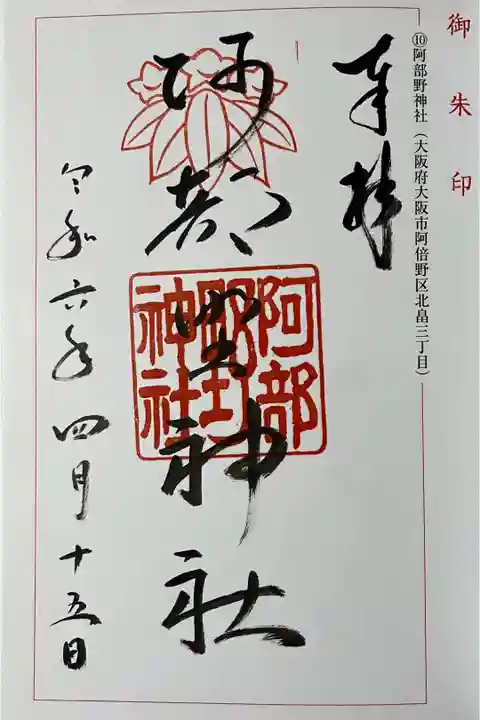 御朱印
⑩阿部野神社（大阪府大阪市阿倍野区北畠三丁目）
奉拝
阿部野神社
阿部野神社
令和六年四月十五日